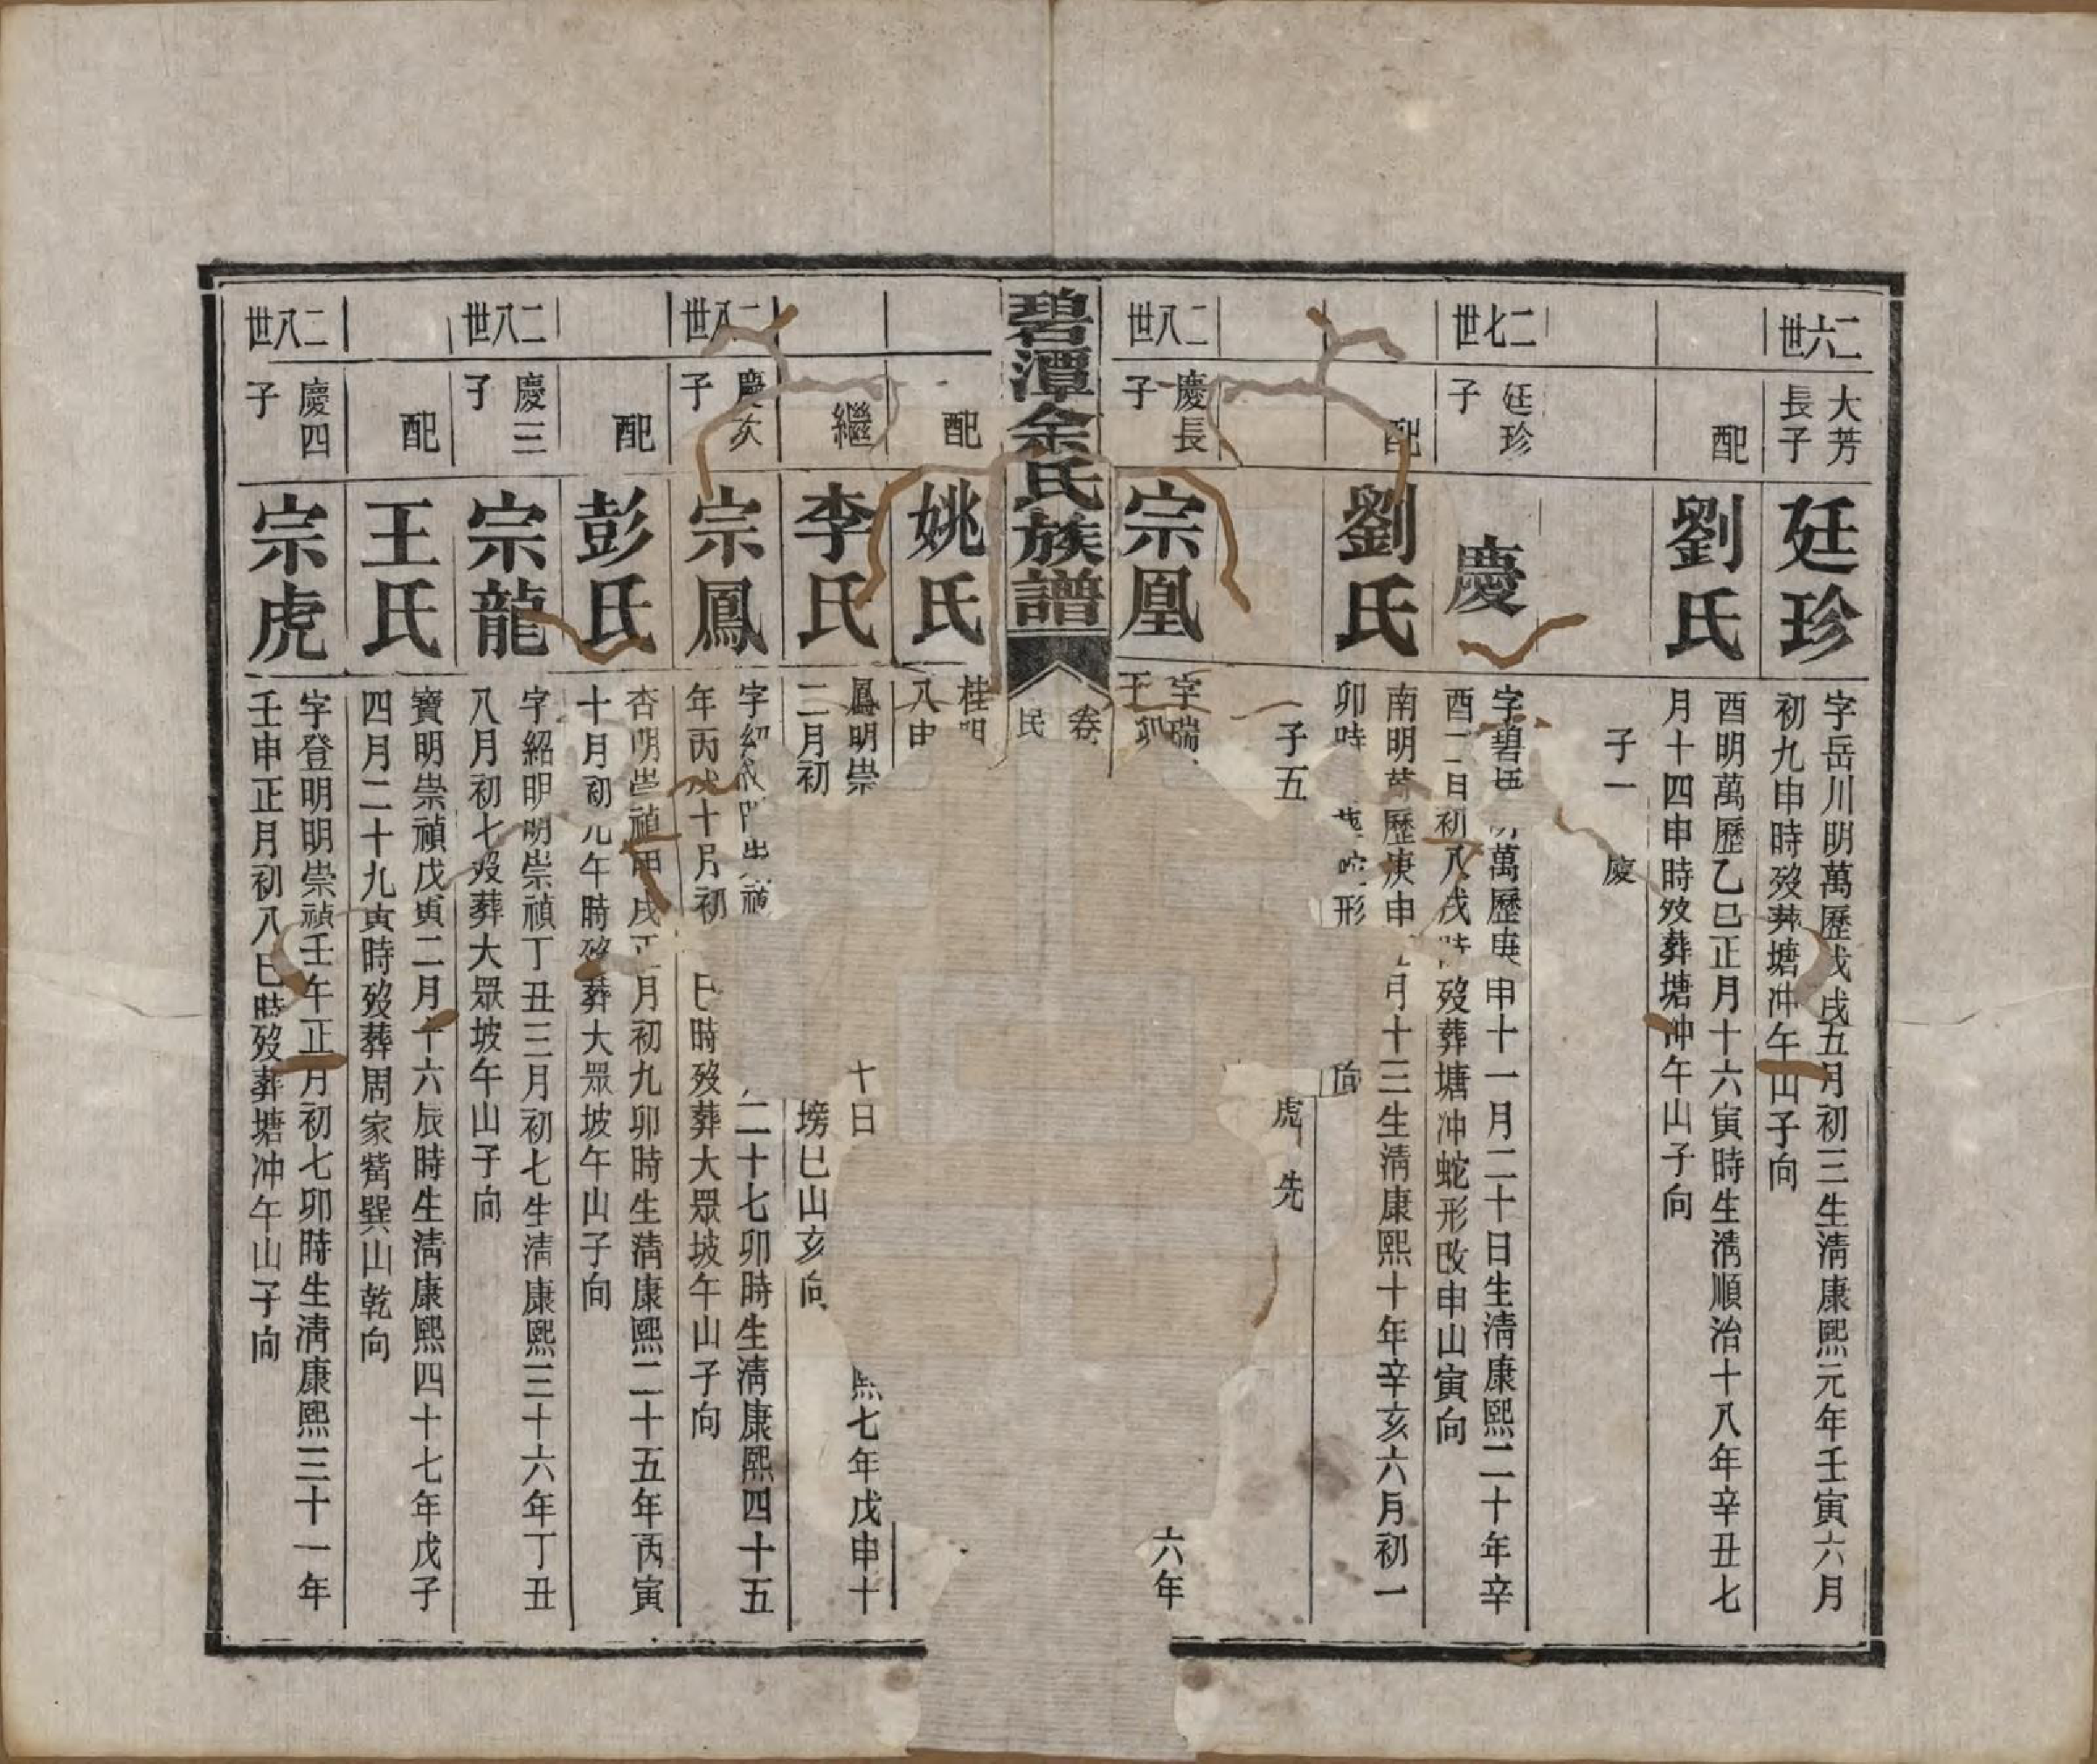 二六世
大芳
長子
廷珍
字岳川明萬歷戊戌五月初三生淸康熙元年壬寅六月
初九申時歿葬塘冲午山子向
配
劉氏
酉明萬歷乙巳正月十六寅時生淸順治十八年辛丑七
月十四申時歿葬塘冲午山子向
子一 慶
二七世
廷珍
子
慶
字碧 萬歷庚申十一月二十日生淸康熙二十年辛
酉二月初八戌時歿葬塘冲蛇形改申山寅向
配
劉氏
南明萬歷庚申 月十三生淸康熙十年辛亥六月初一
卯時 葬蛇形 向
子五 虎 先
二八世
慶長
子
宗凰
字瑞 六年
壬
碧潭余氏族譜
卷
民
配
姚氏
桂明
八申
繼
李氏
鳳明崇 十日 熙七年戊申十
二月初 塝巳山亥向
二八世
慶次
子
宗鳳
字紹 明崇禎 二十七卯時生淸康熙四十五
年丙戌十月初 巳時歿葬大眾坡午山子向
配
彭氏
杏明崇禎甲戌正月初九卯時生淸康熙二十五年丙寅
十月初九午時歿葬大眾坡午山子向
二八世
慶三
子
宗龍
字紹明明崇禎丁丑三月初七生淸康熙三十六年丁丑
八月初七歿葬大眾坡午山子向
配
王氏
寶明崇禎戊寅二月十六辰時生淸康熙四十七年戊子
四月二十九寅時歿葬周家觜巽山乾向
二八世
慶四
子
宗虎
字登明明崇禎壬午正月初七卯時生淸康熙三十一年
壬申正月初八巳時歿葬塘冲午山子向